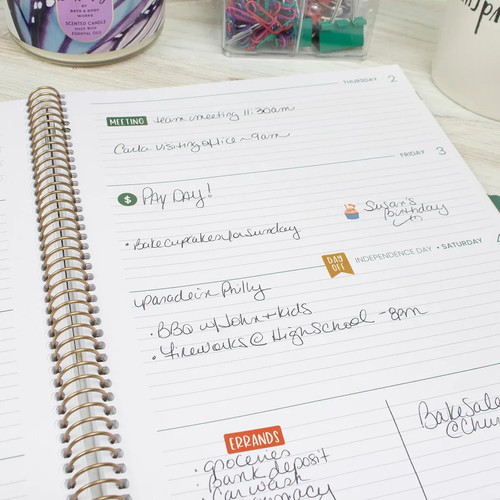 BATH & BODY
WORKS
SCENTED CANDLE
MADE WITH
ESSENTIAL OILS
THURSDAY 2
MEETING team meeting 11:30am
Carla visiting office ~ 9am
FRIDAY 3
$ PAY DAY!
Susan's
Birthday
• Bake cupcakes for Sunday
DAY
OFF
INDEPENDENCE DAY • SATURDAY
parade in Philly
• BBQ w/ John + kids
• Fireworks @ High School - 8pm
ERRANDS
• groceries
• Bank deposit
• Car wash
Bake Sale